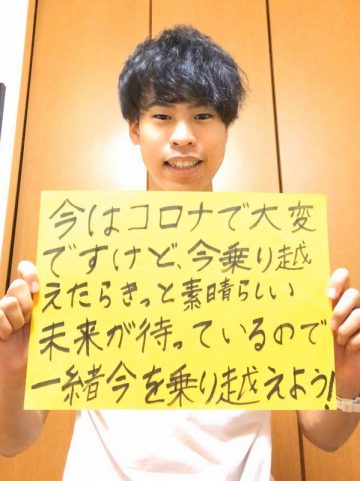 今はコロナで大変
ですけど、今乗り越
えたらきっと素晴らしい
未来が待っているので
一緒今を乗り越えよう!